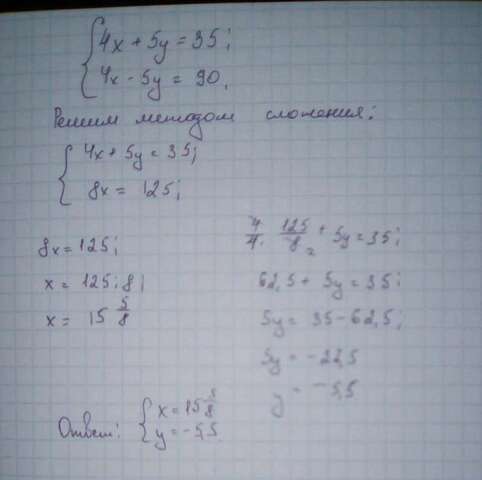 4x + 5y = 35;
4x - 5y = 90.
Решим методом сложения:
4x + 5y = 35;
8x = 125;
8x = 125;
x = 125 : 8;
x = 15 5/8
4/1 · 125/8 2 + 5y = 35;
62,5 + 5y = 35;
5y = 35 - 62,5;
5y = -27,5
y = -5,5
Ответ: x = 15 5/8
y = -5,5.